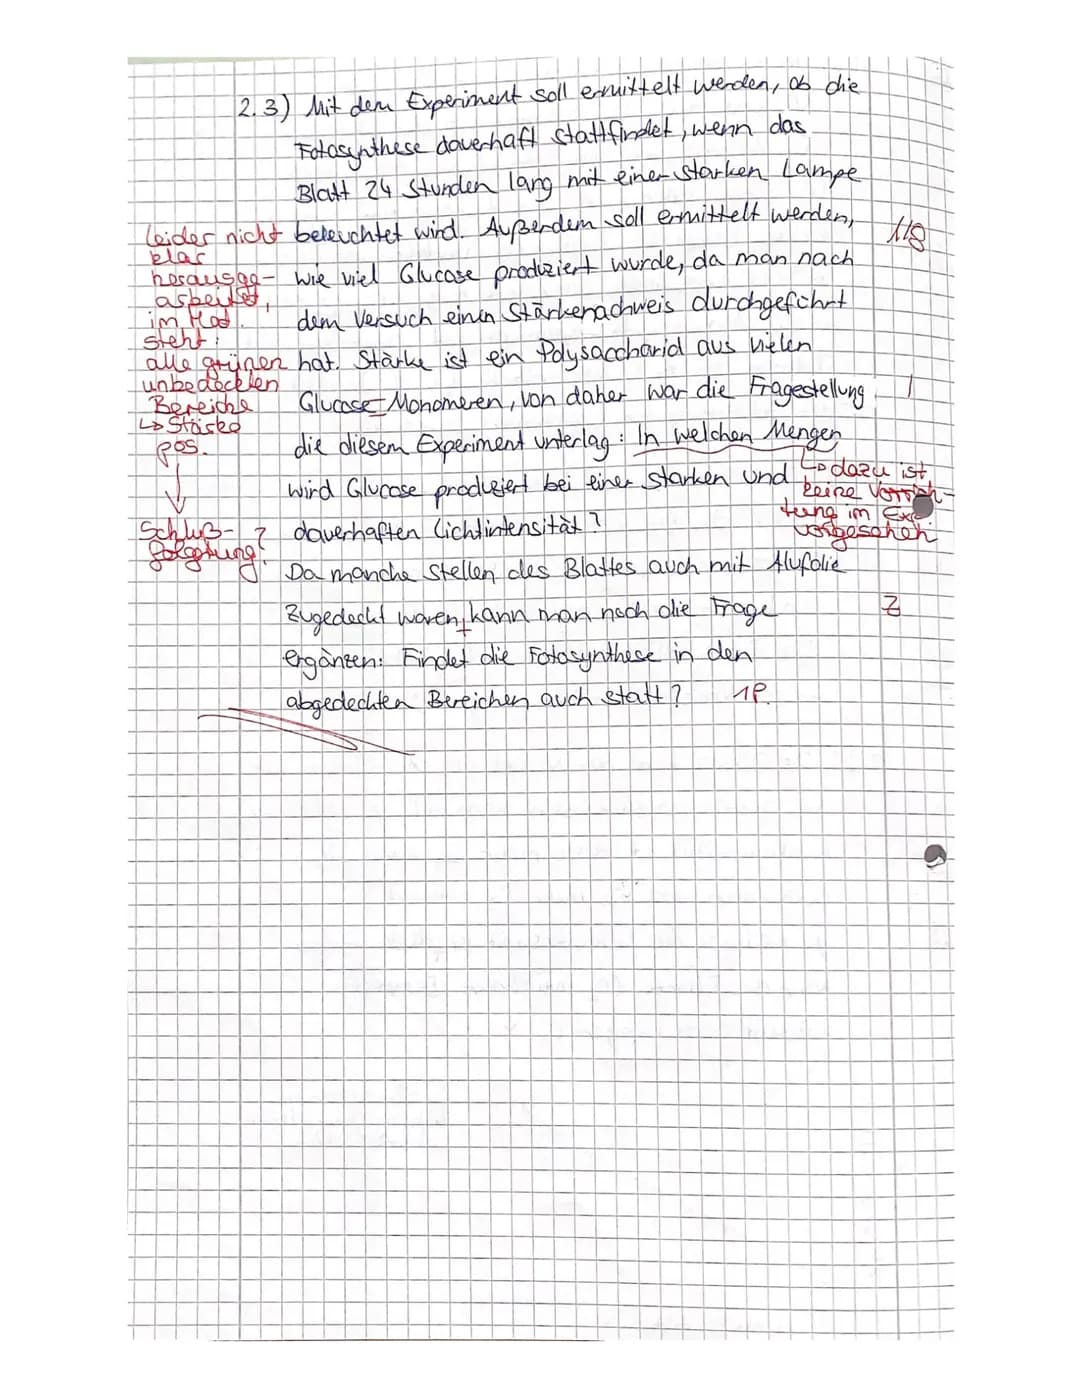 2.3) Mit dem Experiment soll ermittelt werden, ob die
Fotosynthese dauerhaft stattfindet, wenn das
Blatt 24 Stunden lang mit einer starken Lampe
beleuchtet wird. Außerdem soll ermittelt werden,
wie viel Glucose produziert wurde, da man nach
dem Versuch einen Stärkenachweis durchgeführt
hat. Stärke ist ein Polysaccharid aus vielen
Glucose-Monomeren, von daher war die Fragestellung
die diesem Experiment unterlag: In welchen Mengen
wird Glucose produziert bei einer starken und
dauerhaften Lichtintensität?
Da manche Stellen des Blattes auch mit Alufolie
zugedeckt waren, kann man noch die Frage
ergänzen: Findet die Fotosynthese in den
abgedeckten Bereichen auch statt? 1P.
leider nicht
klar
herausge-
arbeitet,
im Mat.
steht:
alle grünen
unbedeckten
Bereiche
↳ Stärke
pos.
↓
Schluß-
folgerung?
118
|
↳ dazu ist
keine Vorrich-
tung im Exp.
vorgesehen
Z